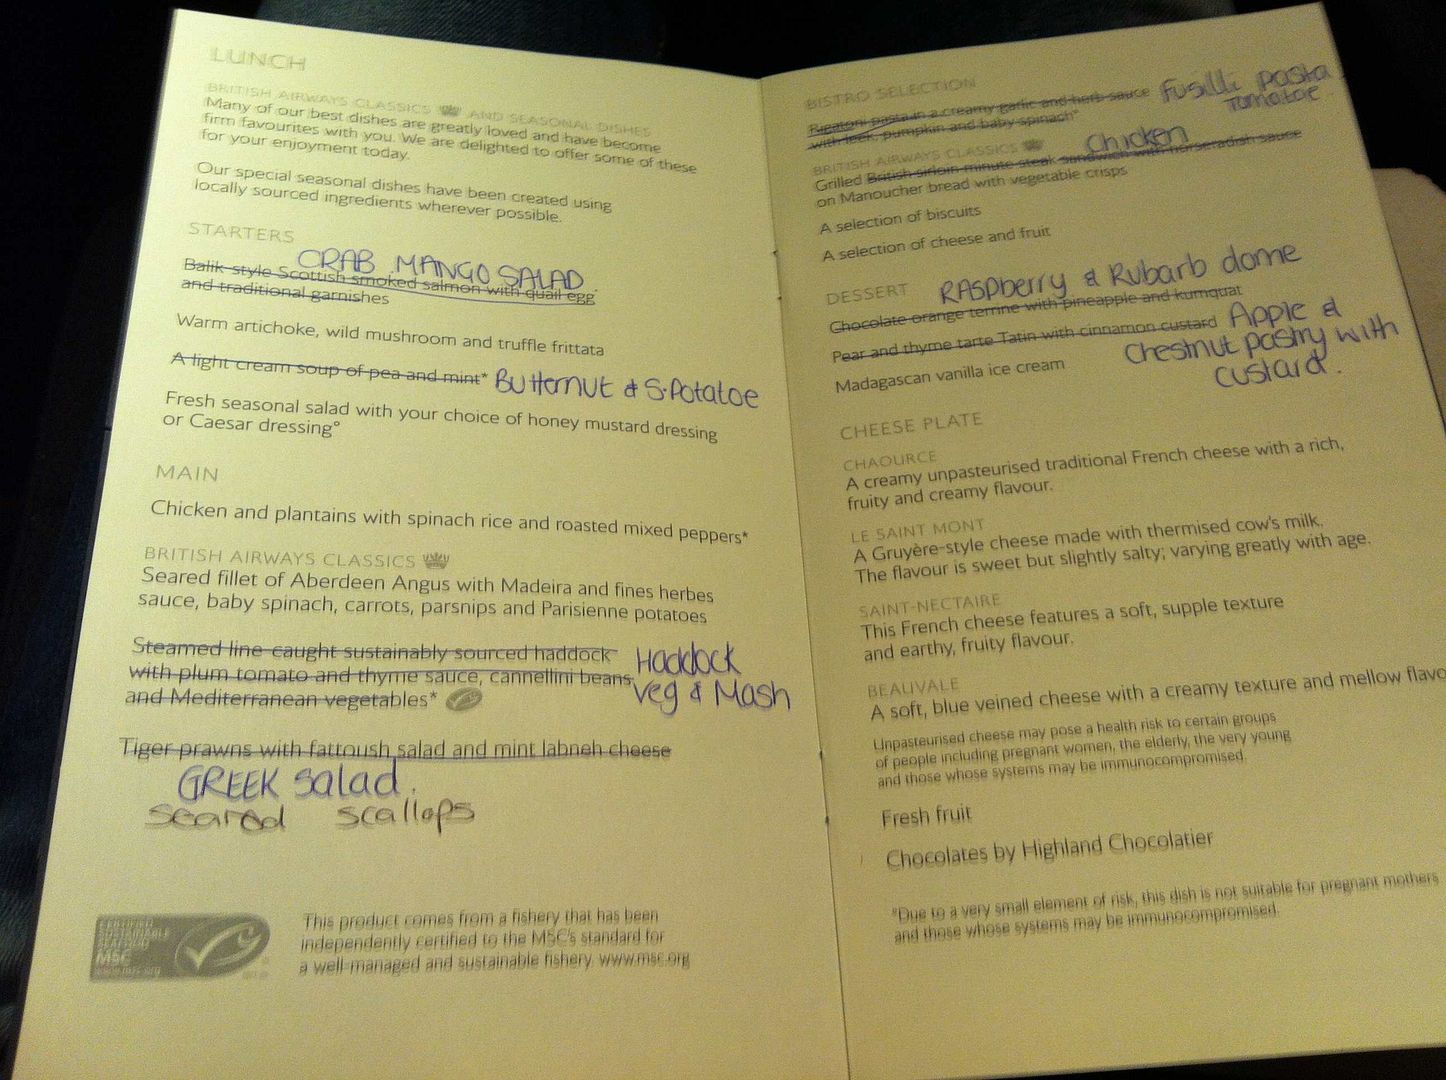 LUNCH
BRITISH AIRWAYS CLASSICS AND SEASONAL DISHES
Many of our best dishes are greatly loved and have become
firm favourites with you. We are delighted to offer some of these
for your enjoyment today.
Our special seasonal dishes have been created using
locally sourced ingredients wherever possible.
STARTERS
CRAB MANGO SALAD.
Balik-style Scottish smoked salmon with quail egg
and traditional garnishes
Warm artichoke, wild mushroom and truffle frittata
A light cream soup of pea and mint* Butternut & S.Potatoe
Fresh seasonal salad with your choice of honey mustard dressing
or Caesar dressing°
MAIN
Chicken and plantains with spinach rice and roasted mixed peppers*
BRITISH AIRWAYS CLASSICS
Seared fillet of Aberdeen Angus with Madeira and fines herbes
sauce, baby spinach, carrots, parsnips and Parisienne potatoes
Steamed line caught sustainably sourced haddock Haddock
with plum tomato and thyme sauce, cannellini beans Veg & Mash
and Mediterranean vegetables*
Tiger prawns with fattoush salad and mint labneh cheese
GREEK Salad.
seared scallops
CERTIFIED
SUSTAINABLE
SEAFOOD
MSC
www.msc.org
This product comes from a fishery that has been
independently certified to the MSC's standard for
a well-managed and sustainable fishery. www.msc.org
BISTRO SELECTION
Rigatoni pasta in a creamy garlic and herb sauce Fusilli pasta
with leek, pumpkin and baby spinach* Tomatoe
BRITISH AIRWAYS CLASSICS Chicken
Grilled British sirloin minute steak sandwich with horseradish sauce
on Manoucher bread with vegetable crisps
A selection of biscuits
A selection of cheese and fruit
DESSERT RASpberry & Rubarb dome
Chocolate orange terrine with pineapple and kumquat
Pear and thyme tarte Tatin with cinnamon custard Apple &
Chestnut pastry with
Madagascan vanilla ice cream custard.
CHEESE PLATE
CHAOURCE
A creamy unpasteurised traditional French cheese with a rich,
fruity and creamy flavour.
LE SAINT MONT
A Gruyère-style cheese made with thermised cow's milk.
The flavour is sweet but slightly salty; varying greatly with age.
SAINT-NECTAIRE
This French cheese features a soft, supple texture
and earthy, fruity flavour.
BEAUVALE
A soft, blue veined cheese with a creamy texture and mellow flavo
Unpasteurised cheese may pose a health risk to certain groups
of people including pregnant women, the elderly, the very young
and those whose systems may be immunocompromised.
Fresh fruit
Chocolates by Highland Chocolatier
°Due to a very small element of risk, this dish is not suitable for pregnant mothers
and those whose systems may be immunocompromised.